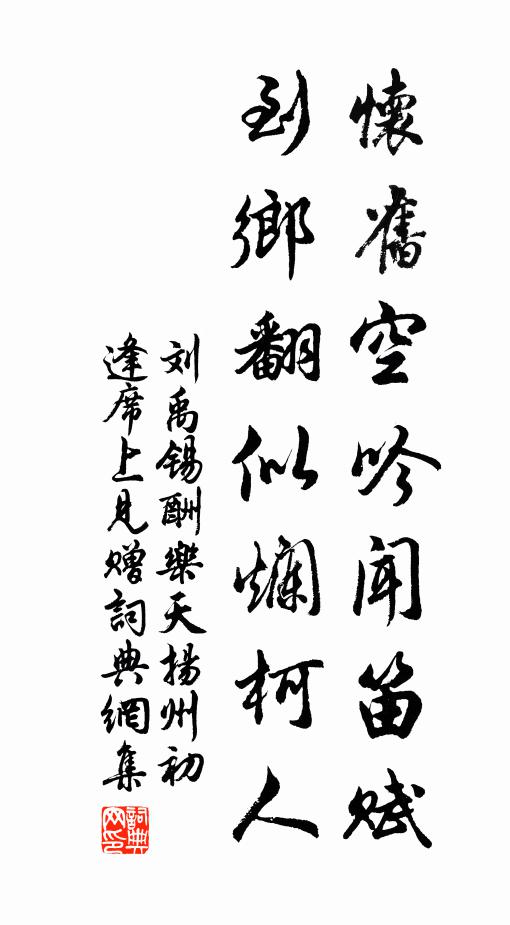 懷舊空吟闻笛賦
到鄉翻似爛柯人
刘禹锡酬樂天揚州初
逢席上見贈詞典網集
詞典
网印